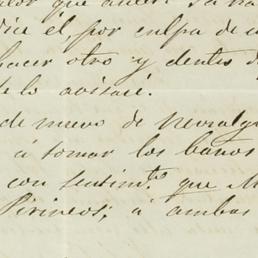 que
dice él por culpa de
hacer otro y dentro d
te lo avisaré.
de nuevo de Neuralg
á tomar los baños
con sentimto. que M
Pirineos; á ambas